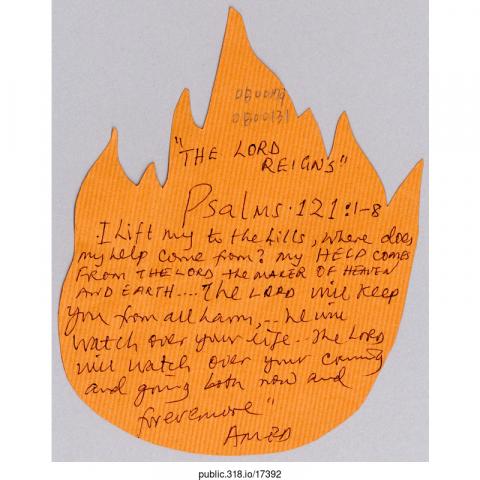 "THE LORD
REIGNS"
Psalms. 121:1-8
I Lift my to the hills, where does
my help come from? my HELP COMES
FROM THE LORD the MAKER OF HEAVEN
AND EARTH.... The LORD will keep
you from all harm,... he will
watch over your life.. The LORD
will watch over your coming
and going both now and
forevermore"
public.318.io/17392